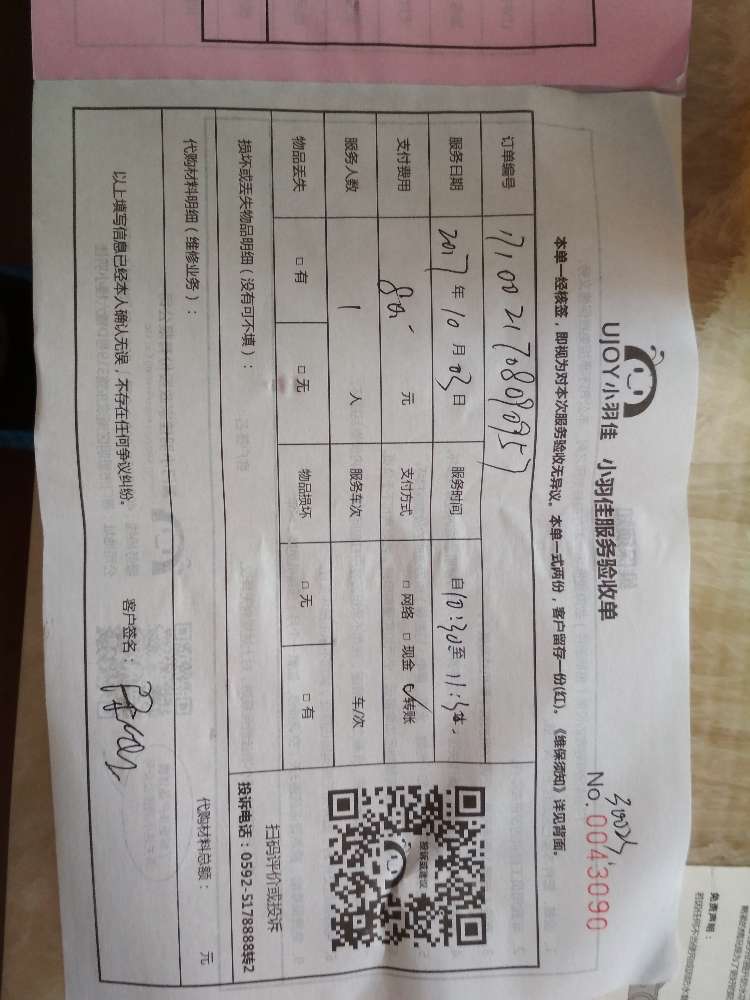 UJOY小羽佳 小羽佳服务验收单
No. 0043090
本单一经核签，即视为对本次服务验收无异议。本单一式两份，客户留存一份(红)。《维保须知》详见背面。
订单编号 171002170809095７
服务日期 2017年10月03日 服务时间 自10:30至11:30
支付费用 80 元 支付方式 □网络 □现金 ☑转账
服务人数 1 人 服务车次 车/次
物品丢失 □有 □无 物品损坏 □无 □有
损坏或丢失物品明细（没有可不填）：
扫码评价或投诉
投诉电话：0592-5178888转2
投诉或建议
代购材料明细（维修业务）： 代购材料总额： 元
以上填写信息已经本人确认无误，不存在任何争议纠纷。 客户签名：
免责声明：